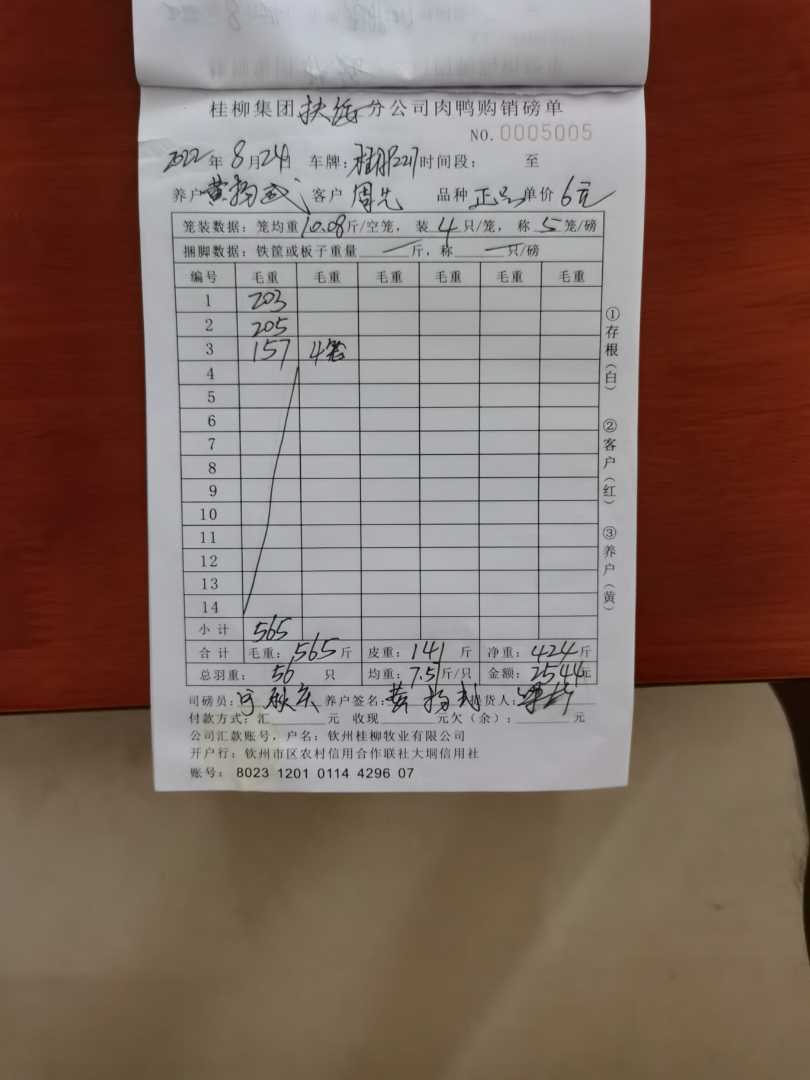 桂柳集团扶绥分公司肉鸭购销磅单
NO.0005005
2022年8月24日 车牌: 时间段: 至
养户 黄 客户 周先 品种 正品 单价 6元
笼装数据: 笼均重10.08斤/空笼, 装4只/笼, 称5笼/磅
捆脚数据: 铁筐或板子重量 斤, 称 只/磅
编号 毛重 毛重 毛重 毛重 毛重 毛重
1 203
2 205
3 157 4笼
4
5
6
7
8
9
10
11
12
13
14
小计 565
合计 毛重:565斤 皮重:141斤 净重:424斤
总羽重: 56只 均重:7.57斤/只 金额:2544元
司磅员: 养户签名:黄 提货人:
付款方式: 汇 元 收现 元欠(余): 元
公司汇款账号,户名:钦州桂柳牧业有限公司
开户行:钦州市区农村信用合作联社大垌信用社
账号: 8023 1201 0114 4296 07
①存根(白)
②客户(红)
③养户(黄)